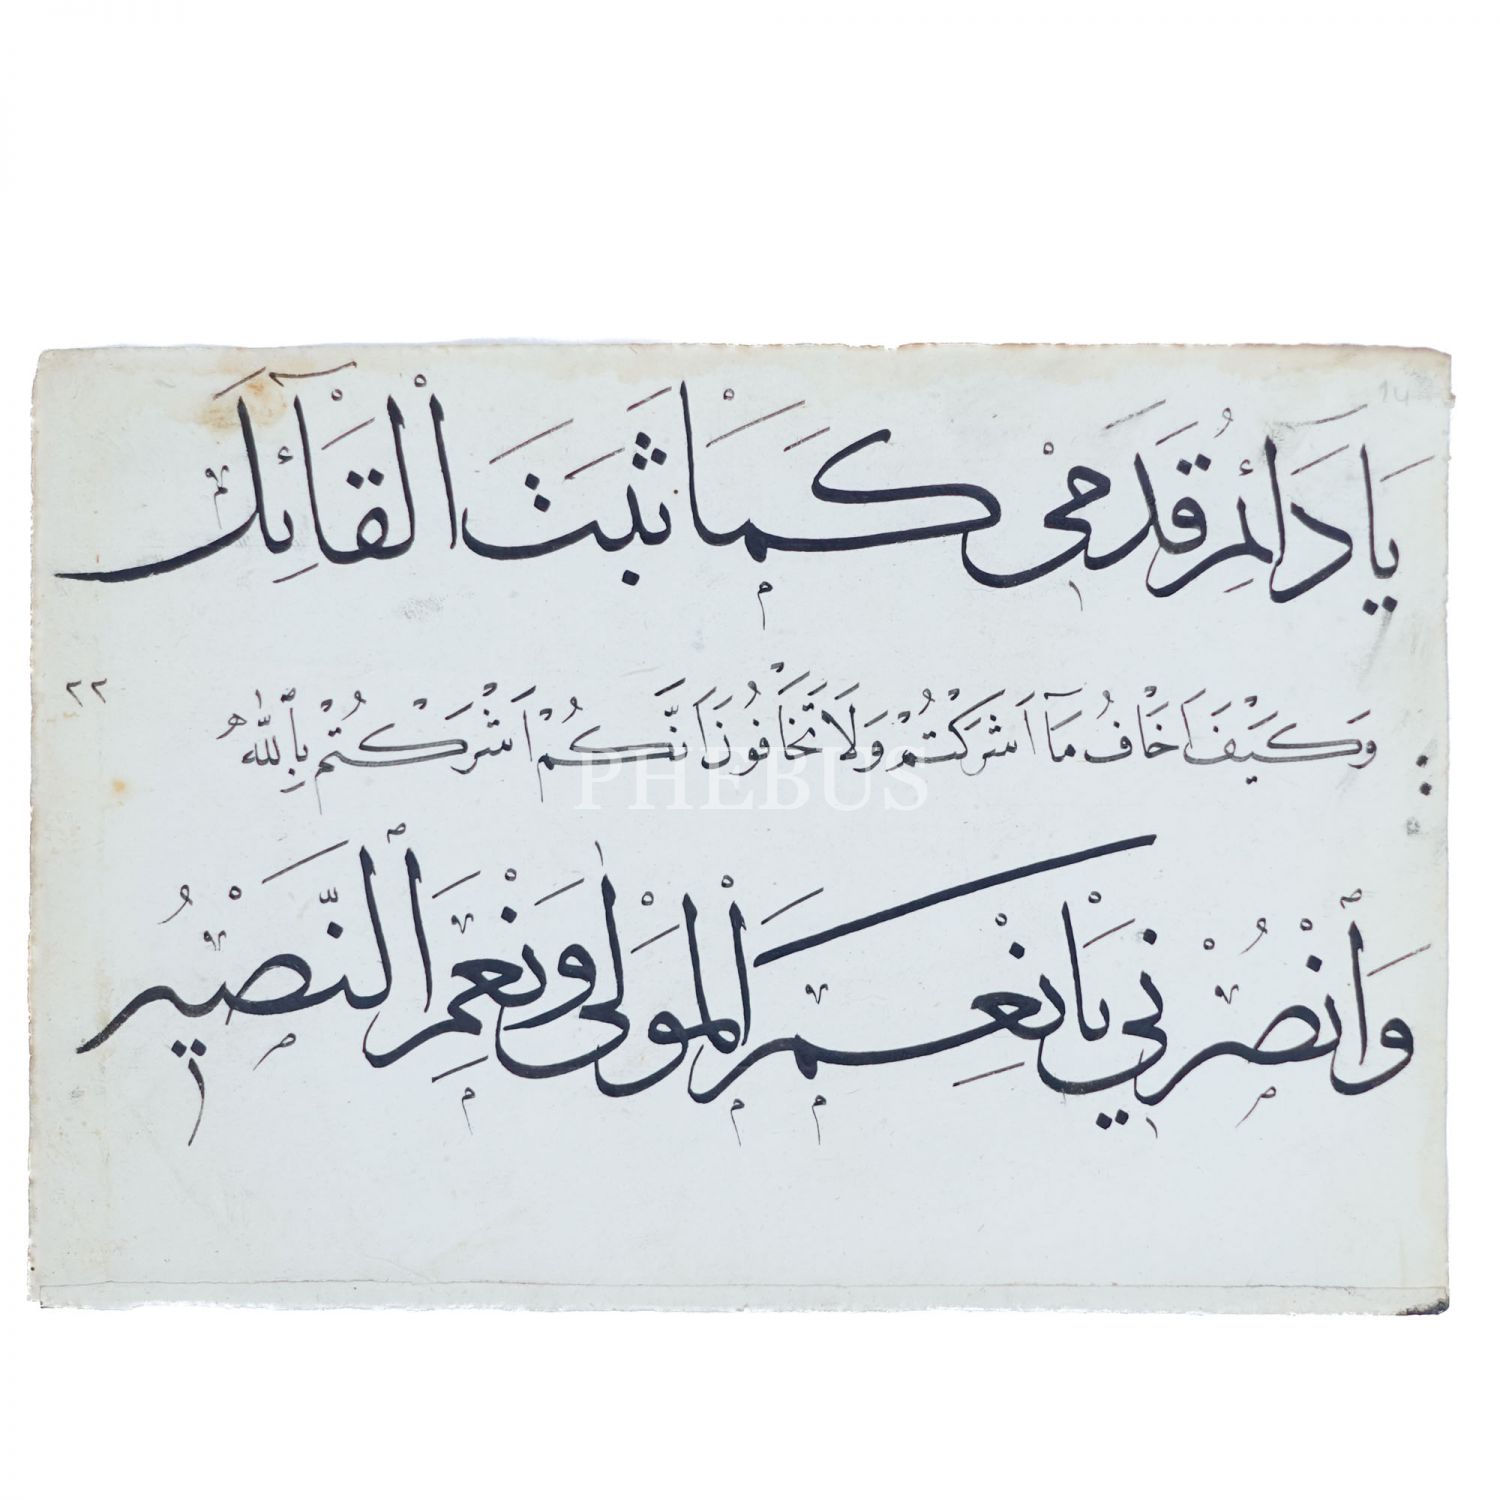 يَا دَائِمُ قَدَمَيْ كَمَا ثَبَتَ الْقَآئِلَ
وَكَيْفَ اَخَافُ مَآ اَشْرَكْتُمْ وَلَا تَخَافُونَ اَنَّكُمْ اَشْرَكْتُمْ بِاللّٰهِ
٢٢
PHEBUS
وَانْصُرْنِي يَا نِعْمَ الْمَوْلٰى وَنِعْمَ النَّصِيْرُ